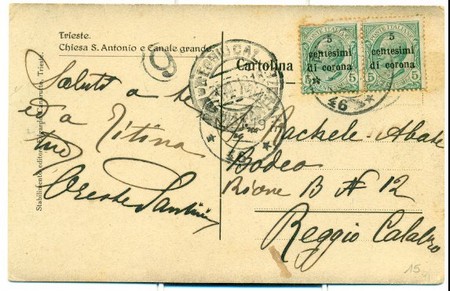 Trieste.
Chiesa S. Antonio e Canale grande.
Cartolina
5
centesimi
di corona
5
centesimi
di corona
46
Saluti a te
e a Titina
tuo
Oreste Santini
Rachele Abate
Bodeo
Rione B N 12
Reggio Calabro
15